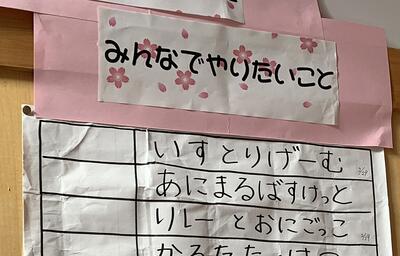 みんなでやりたいこと
いすとりげーむ
あにまるばすけっと
りレーとおにごっこ